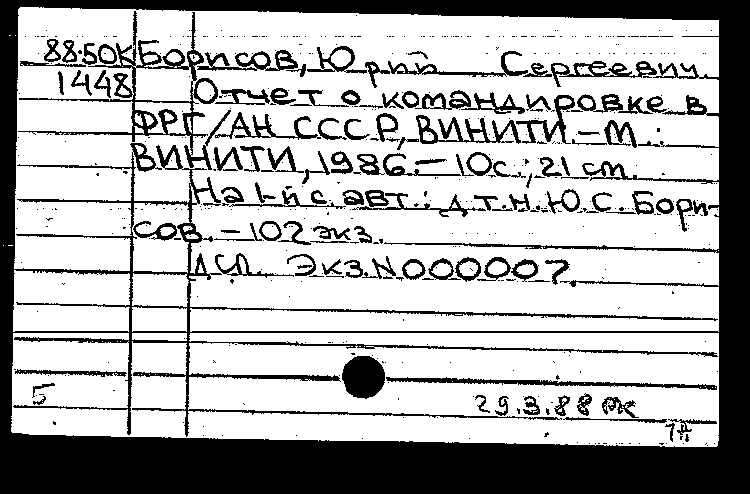 88.50К Борисов, Юрий Сергеевич.
1448 Отчет о командировке в
ФРГ/АН СССР, ВИНИТИ.–М.:
ВИНИТИ, 1986.–10с.; 21 см.
На 1-й с. авт.: д.т.н. Ю.С. Бори-
сов.–102 экз.
ДСП. Экз.N000007.
5
29.3.88